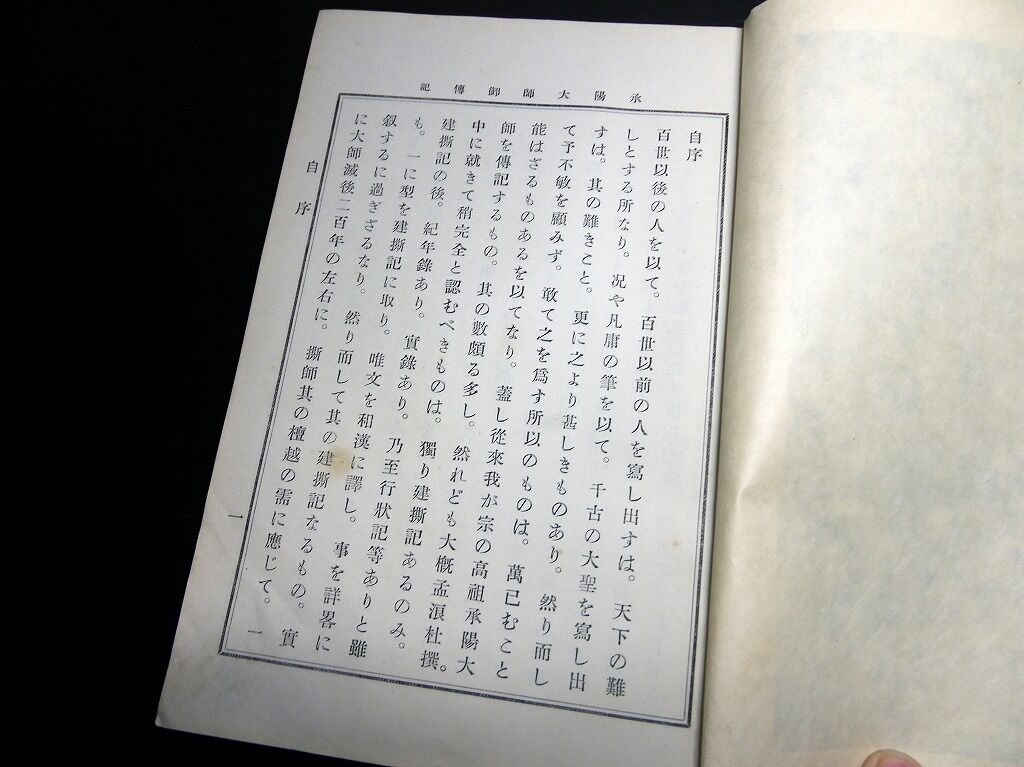 承陽大師御傳記
自序
百世以後の人を以て。百世以前の人を寫し出すは。天下の難
しとする所なり。况や凡庸の筆を以て。千古の大聖を寫し出
すは。其の難きこと。更に之より甚しきものあり。然り而し
て予不敏を顧みず。敢て之を爲す所以のものは。萬已むこと
能はざるものあるを以てなり。蓋し從來我が宗の高祖承陽大
師を傳記するもの。其の數頗る多し。然れども大槪孟浪杜撰。
中に就きて稍完全と認むべきものは。獨り建撕記あるのみ。
建撕記の後。紀年錄あり。實錄あり。乃至行狀記等ありと雖
も。一に型を建撕記に取り。唯文を和漢に譯し。事を詳畧に
叙するに過ぎざるなり。然り而して其の建撕記なるもの。實
に大師滅後二百年の左右に。撕師其の檀越の需に應じて。
自序
一
一